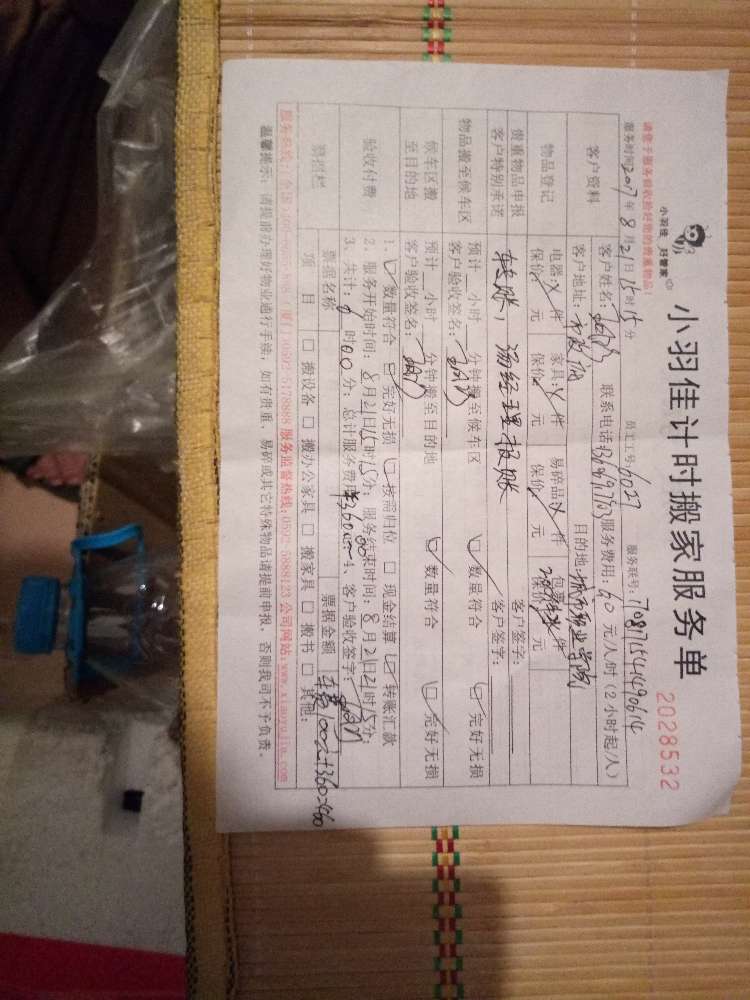 小羽佳 好管家
小羽佳计时搬家服务单
2028532
请您于服务前收验好您的贵重物品!
员工工号: 6027 服务联号: 70871541490614
服务时间 2017年8月21日15时15分
客户资料
客户姓名: 联系电话: 服务费用: 60 元/人/时(2小时起/人)
客户地址: 目的地: 城市职业学院
物品登记
电器: 件 家具: 件 易碎品: 件 包裹: 件
保价 元 保价 元 保价 元 保价 元
贵重物品申报
客户特别承诺
转账, 汤经理报账
客户签字:
客户签字:
物品搬至候车区
预计 小时 分钟搬至候车区 ☑ 数量符合 ☑ 完好无损
客户验收签名:
候车区搬
至目的地
预计 小时 分钟搬至目的地 ☑ 数量符合 ☑ 完好无损
客户验收签名:
验收付费
1、☑ 数量符合 ☑ 完好无损 ☑ 按需归位 □ 现金结算 ☑ 转账汇款
2、服务开始时间: 8月21日15时15分; 服务结束时间: 8月21日21时15分;
3、共计: 6时00分; 总计服务费用¥360元 4、客户验收签字:
票据名称 票据金额 100元+360=460
项目 □ 搬设备 □ 搬办公家具 □ 搬家具 □ 搬书 □ 其他:
(厦门)0592-5178888 服务监督热线:0592-5888123 公司网站:www.xiaoyujia.com
温馨提示: 请提前办理好物业通行手续, 如有贵重、易碎或其它特殊物品请提前申报, 否则我司不予负责。